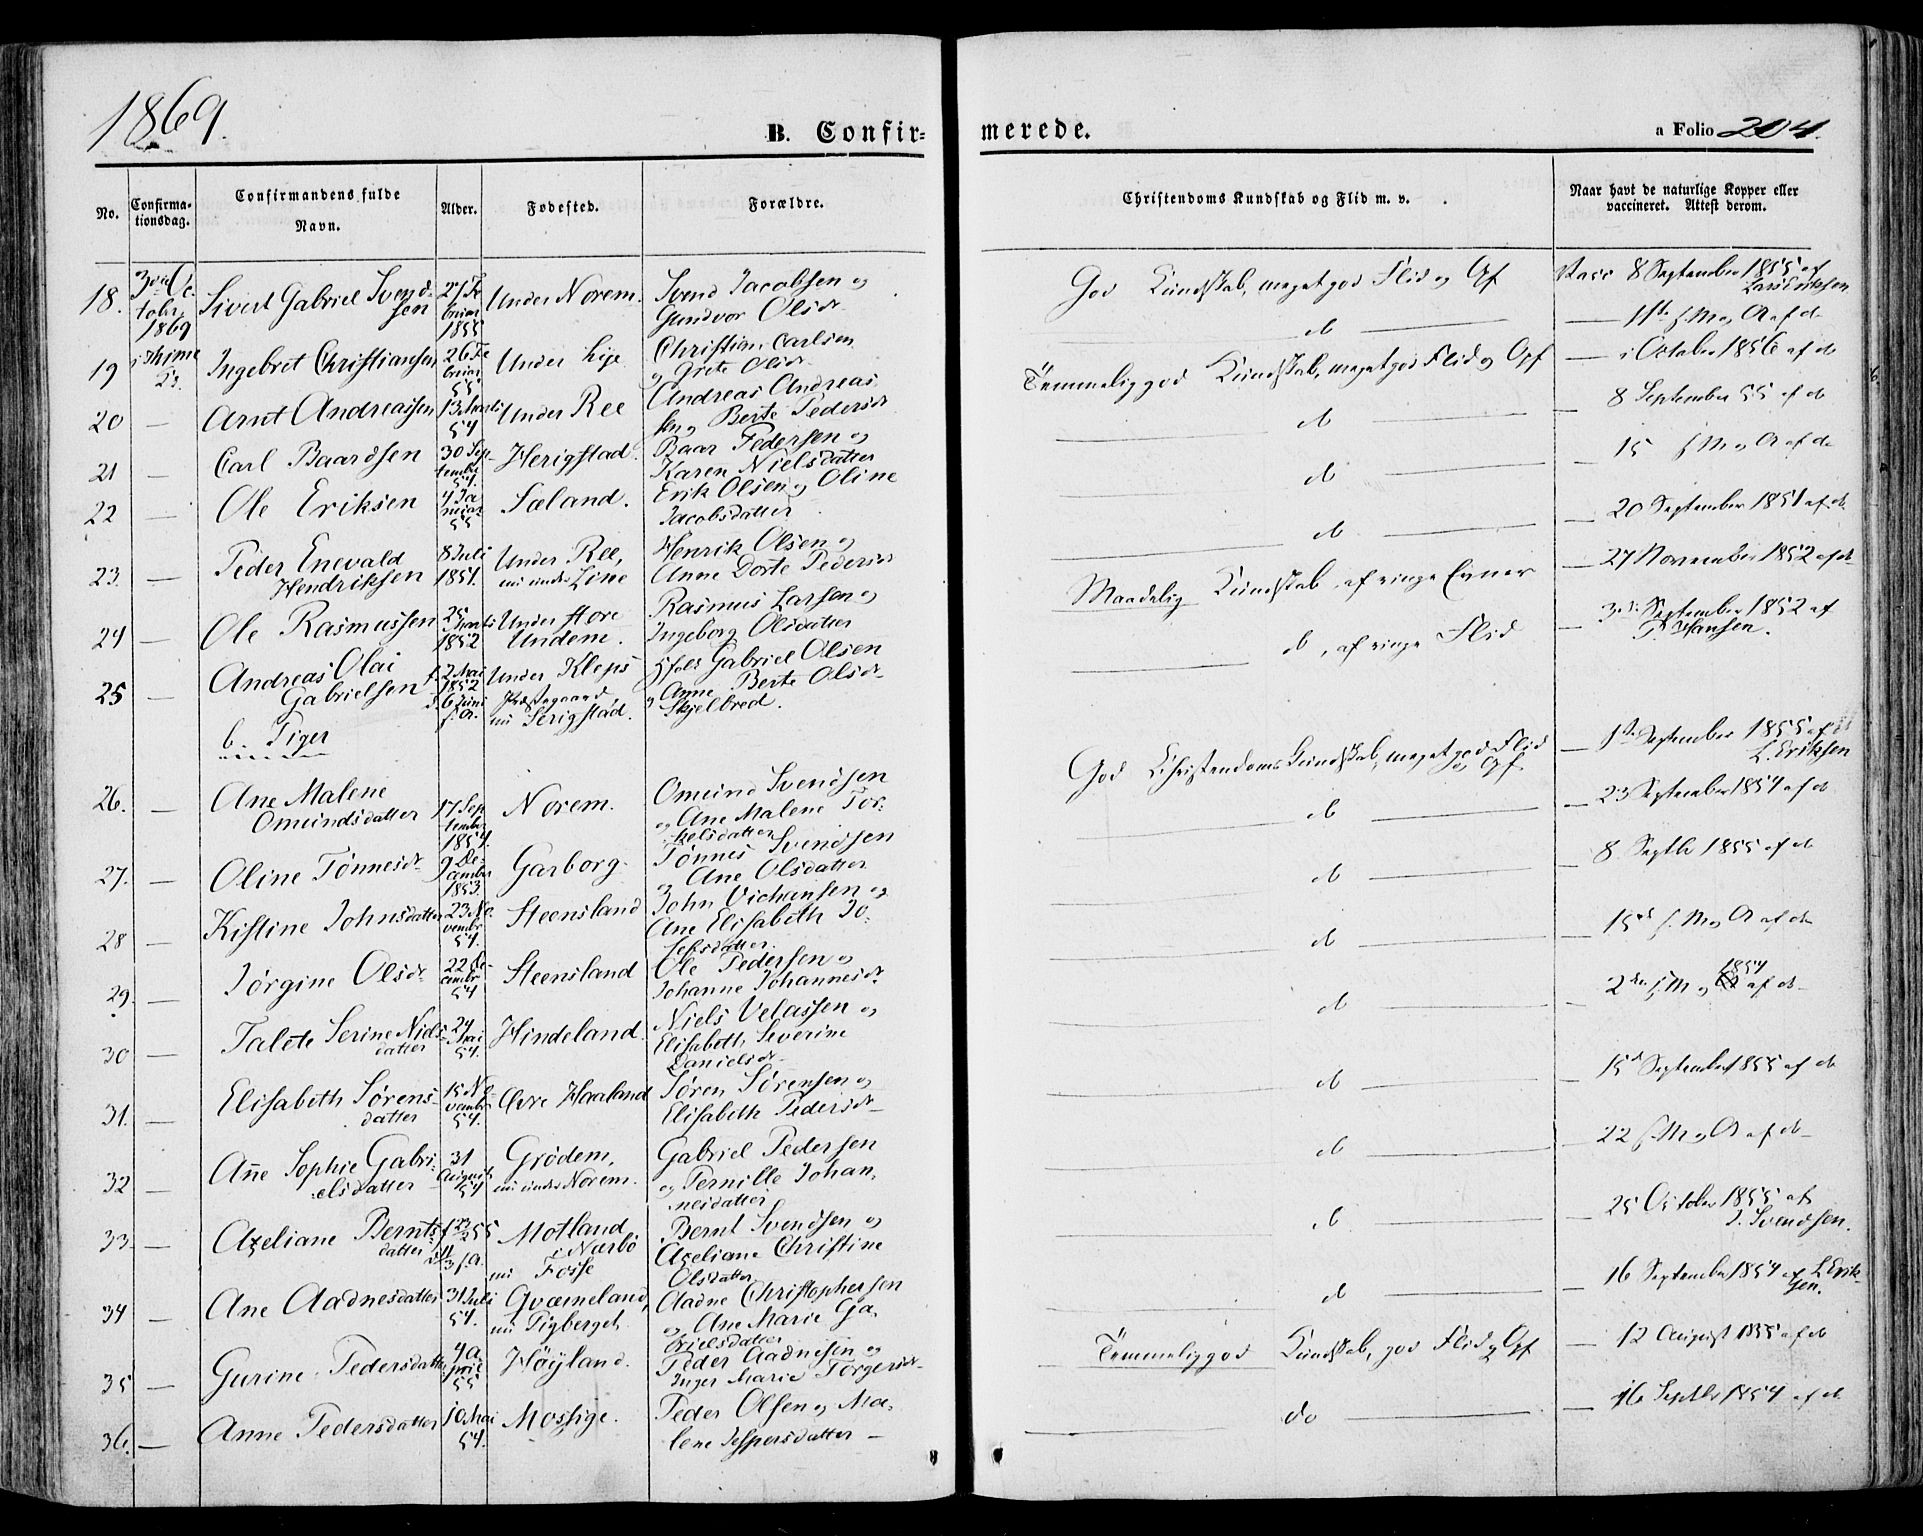 1869.
B. Confir=
merede.
a Folio 204.
No.
Confirma-
tionsdag.
Confirmandens fulde
Navn.
Alder.
Fødested.
Forældre.
Christendoms Kundskab og Flid m. v.
Naar havt de naturlige Kopper eller
vaccineret. Attest derom.
18.
3die Oc-
tober
1869
i Thime
K.
Sivert Gabriel Svend-
sen
27 Fe
bruar
1855
Under Norem.
Svend Jacobsen og
Gundvor Olsdr
God Kundskab, meget god Flid og Opf
Vacc 8 September 1855 af
Lars Eriksen
19
Ingebret Christiansen
26 Fe
bruar
55
Under Lye
Christian Carlsen
og Grete Olsdr
do
11te s. M og A af do
20
—
Arnt Andreassen
13 Marts
54
Under Ree
Andreas Andreas
sen og Berte Pedersdr
Temmelig god Kundskab, meget god Flid og Opf
i October 1856 af do
21
—
Carl Baardsen
30 Sep-
tember
54.
Herigstad.
Baar Pedersen og
Karen Nielsdatter
do
8 September 55 af do
22
—
Ole Eriksen
4 Ja
nuar
55
Sæland.
Erik Olsen og Oline
Jacobsdatter
do
15 s. M og A af do
23.
—
Peder Enevald
Hendriksen
8 Juli
1851.
Under Ree,
nu under Line
Henrik Olsen og
Anne Dorte Pedersdr
do
20 September 1851 af do
24
—
Ole Rasmussen
25
Marts
1852
Under Store
Undem.
Rasmus Larsen og
Ingeborg Olsdatter
Maadelig Kundskab, af ringe Evner
27 November 1852 af do
25
—
Andreas Olai
Gabrielsen
f. 2 Mai
1852
d. 6 Juni
s. A.
Under Kleps
Præstegaard
nu Serigstad.
Gabriel Olsen
og Anne Berte Olsdr
Skjelbred.
do, af ringe Flid
3die September 1852 af
Hansen.
b. Piger
26.
—
Ane Malene
Omundsdatter
17 Sep
tember
1854.
Norem.
Omund Svendsen
og Ane Malene Tor-
kelsdatter
God Christendoms Kundskab, meget god Flid
og Opf
1ste September 1855 af
L. Eriksen
27.
—
Oline Tønnesdr
9 De-
cember
1853.
Garborg.
Tønnes Svendsen
og Ane Olsdatter
do
23 September 1854 af do
28
—
Kistine Johnsdatter
23 No-
vembr
54.
Steensland
John Vichansen og
Ane Elisabeth Jo-
sefsdatter.
do
8 Septbr 1855 af do
29
—
Jørgine Olsdr
22 De-
cembr
54
Steensland
Ole Pedersen og
Johanne Johannesdr
do
15de s. M og A af do
30
—
Talete Serine Niels-
datter
24
Mai
54.
Hindeland.
Niels Velassen og
Elisabeth Severine
Danielsdr
do
2den s. M og 1854 af do
31.
—
Elisabeth Sørens-
datter
15 No-
vember
54.
Øvre Haaland
Søren Sørensen og
Elisabeth Pedersdr
do
15de September 1855 af do
32
—
Anne Sophie Gabri-
elsdatter
31
August
54
Grødem,
nu under Norem.
Gabriel Pedersen
og Pernille Johan-
nesdatter
do
22 s. M og A af do
33.
—
Axeliane Bernts-
datter
3/1 s. A.
Motland
i Nærbø
nu Fosse
Bernt Svendsen og
Axeliane Christine
Olsdatter
do
25 October 1855 af
J. Svendsen.
34
—
Ane Aadnesdatter
31 Juli
54.
Gvæmeland,
nu Tigberget
Aadne Christophersen
og Ane Marie Ga-
brielsdatter
do
16 September 1854 af L Erik-
sen.
35
—
Gurine Pedersdatter
4 A
pril
55
Høyland.
Peder Aadnesen og
Inger Marie Torgersdr
Temmelig god Kundskab, god Flid og Opf
12 August 1855 af do
36.
—
Anne Pedersdatter
10 Mai
54.
Mossige.
Peder Olsen og Ma-
lene Jespersdatter
do
16 Septbr 1854 af do